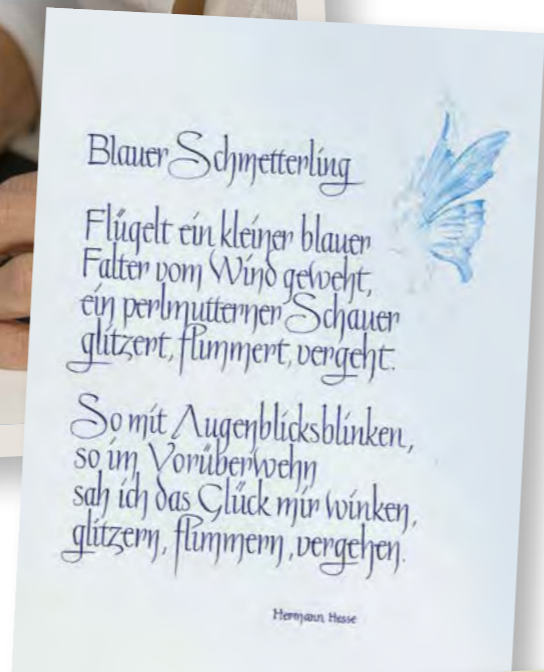 Blauer Schmetterling
Flügelt ein kleiner blauer
Falter vom Wind geweht,
ein perlmutterner Schauer
glitzert, flimmert, vergeht.
So mit Augenblicksblinken,
so im Vorüberwehn
sah ich das Glück mir winken,
glitzern, flimmern, vergehen.
Hermann Hesse